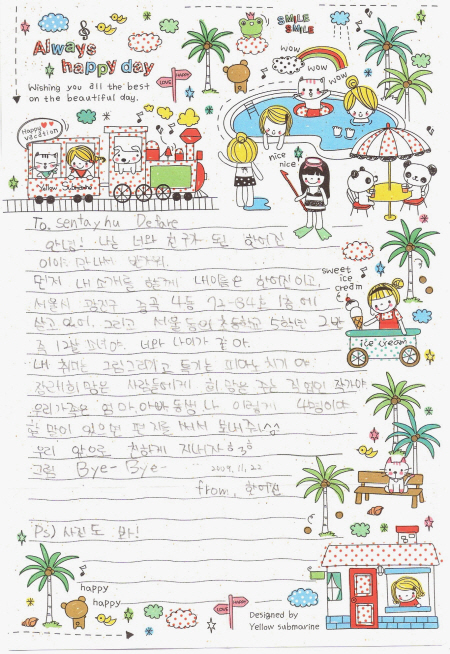 Always
happy day
Wishing you all the best
on the beautiful day.
SMILE
SMILE
LOVE HAPPY
wow
wow
wow
Happy
vacation
Yellow Submarine
nice
nice
To. sentayhu Defare
안녕! 나는 너와 친구가 된
이야 만나서 반가워.
먼저 내 소개를 할게 내이름은
서울시 광진구 중곡 4동 72-84호 1층에
살고 있어. 그리고 서울 초등학교 5학년
12살 소녀야. 너와 나이가 같아.
내 취미는 그림그리기고 특기는 피아노 치기야.
장래희망은 사람들에게 희망은 주는 직업이 작가야
우리가족은 엄마, 아빠, 동생, 나 이렇게 4명이야
할 말이 있으면 편지를 써서
우리 앞으로 친하게 지내자 ㅎㅎ
그럼 Bye- Bye- 2009.11.22
from.
Ps) 사진도 봐!
sweet
ice
cream
ice cream
happy
happy
LOVE HAPPY
Designed by
Yellow submarine